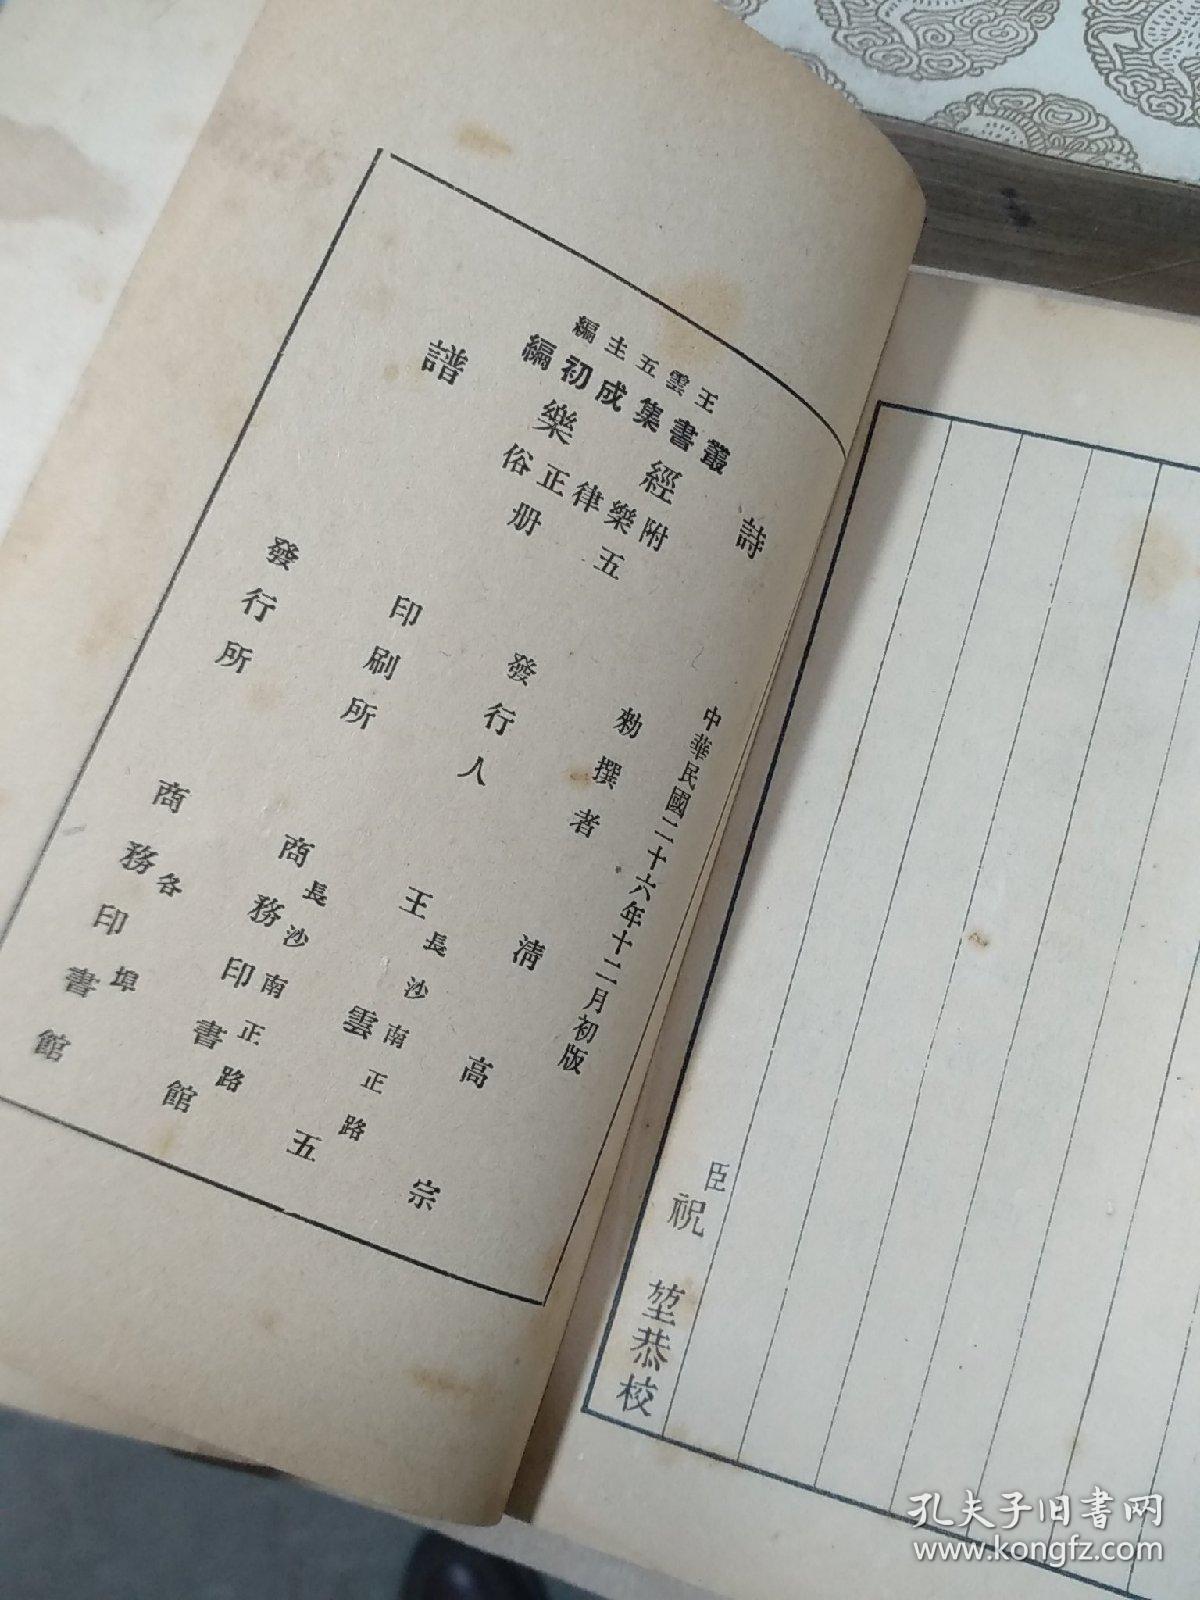 王雲五主編
叢書集成初編
詩經樂譜
附樂律正俗
五册
中華民國二十六年十二月初版
勅撰者 清高宗
發行人 王雲五
長沙南正路
印刷所 商務印書館
長沙南正路
發行所 商務印書館
各埠
臣祝堃恭校
孔夫子旧书网
www.kongfz.com